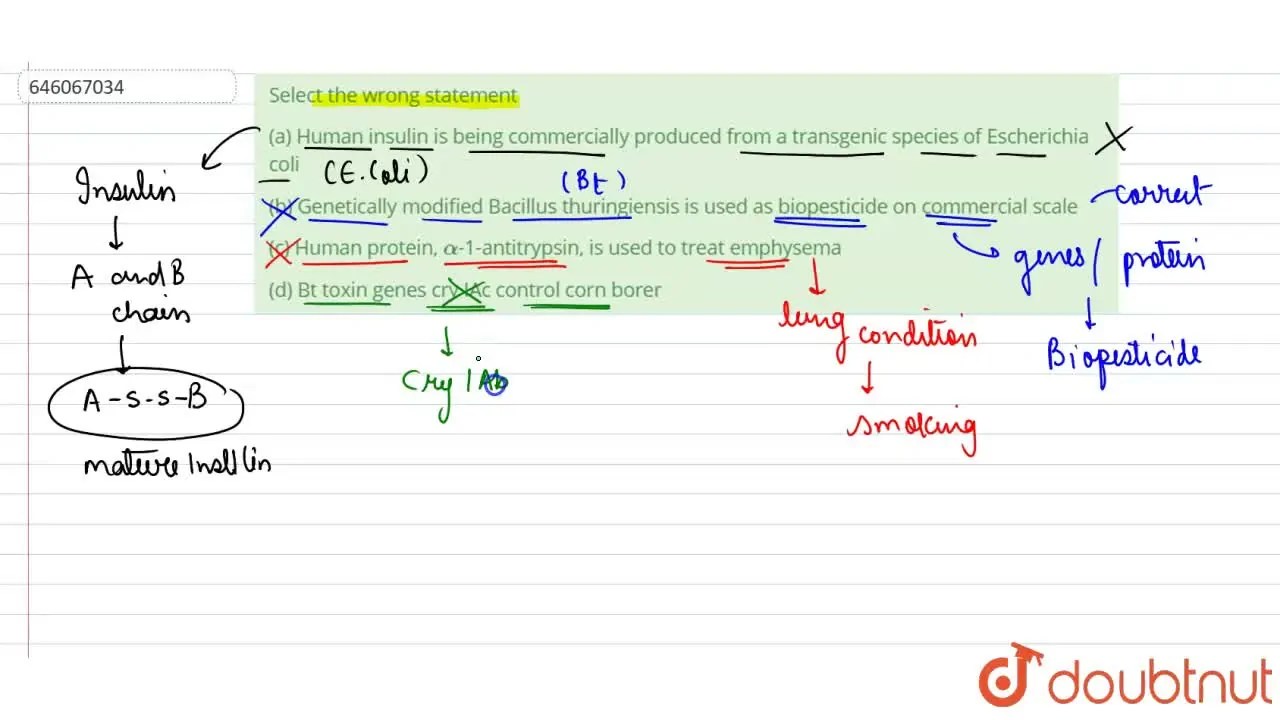 646067034
Select the wrong statement
(a) Human insulin is being commercially produced from a transgenic species of Escherichia
coli
(E.Coli)
(Bt)
(b) Genetically modified Bacillus thuringiensis is used as biopesticide on commercial scale
correct
(c) Human protein, α-1-antitrypsin, is used to treat emphysema
(d) Bt toxin genes cry IAc control corn borer
Insulin
A and B
chain
A-S-S-B
mature Insulin
Cry IAb
lung condition
smoking
genes / protein
Biopesticide
doubtnut